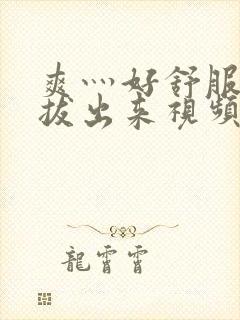 爽灬好舒服
拔出来視頻
龍霄霄